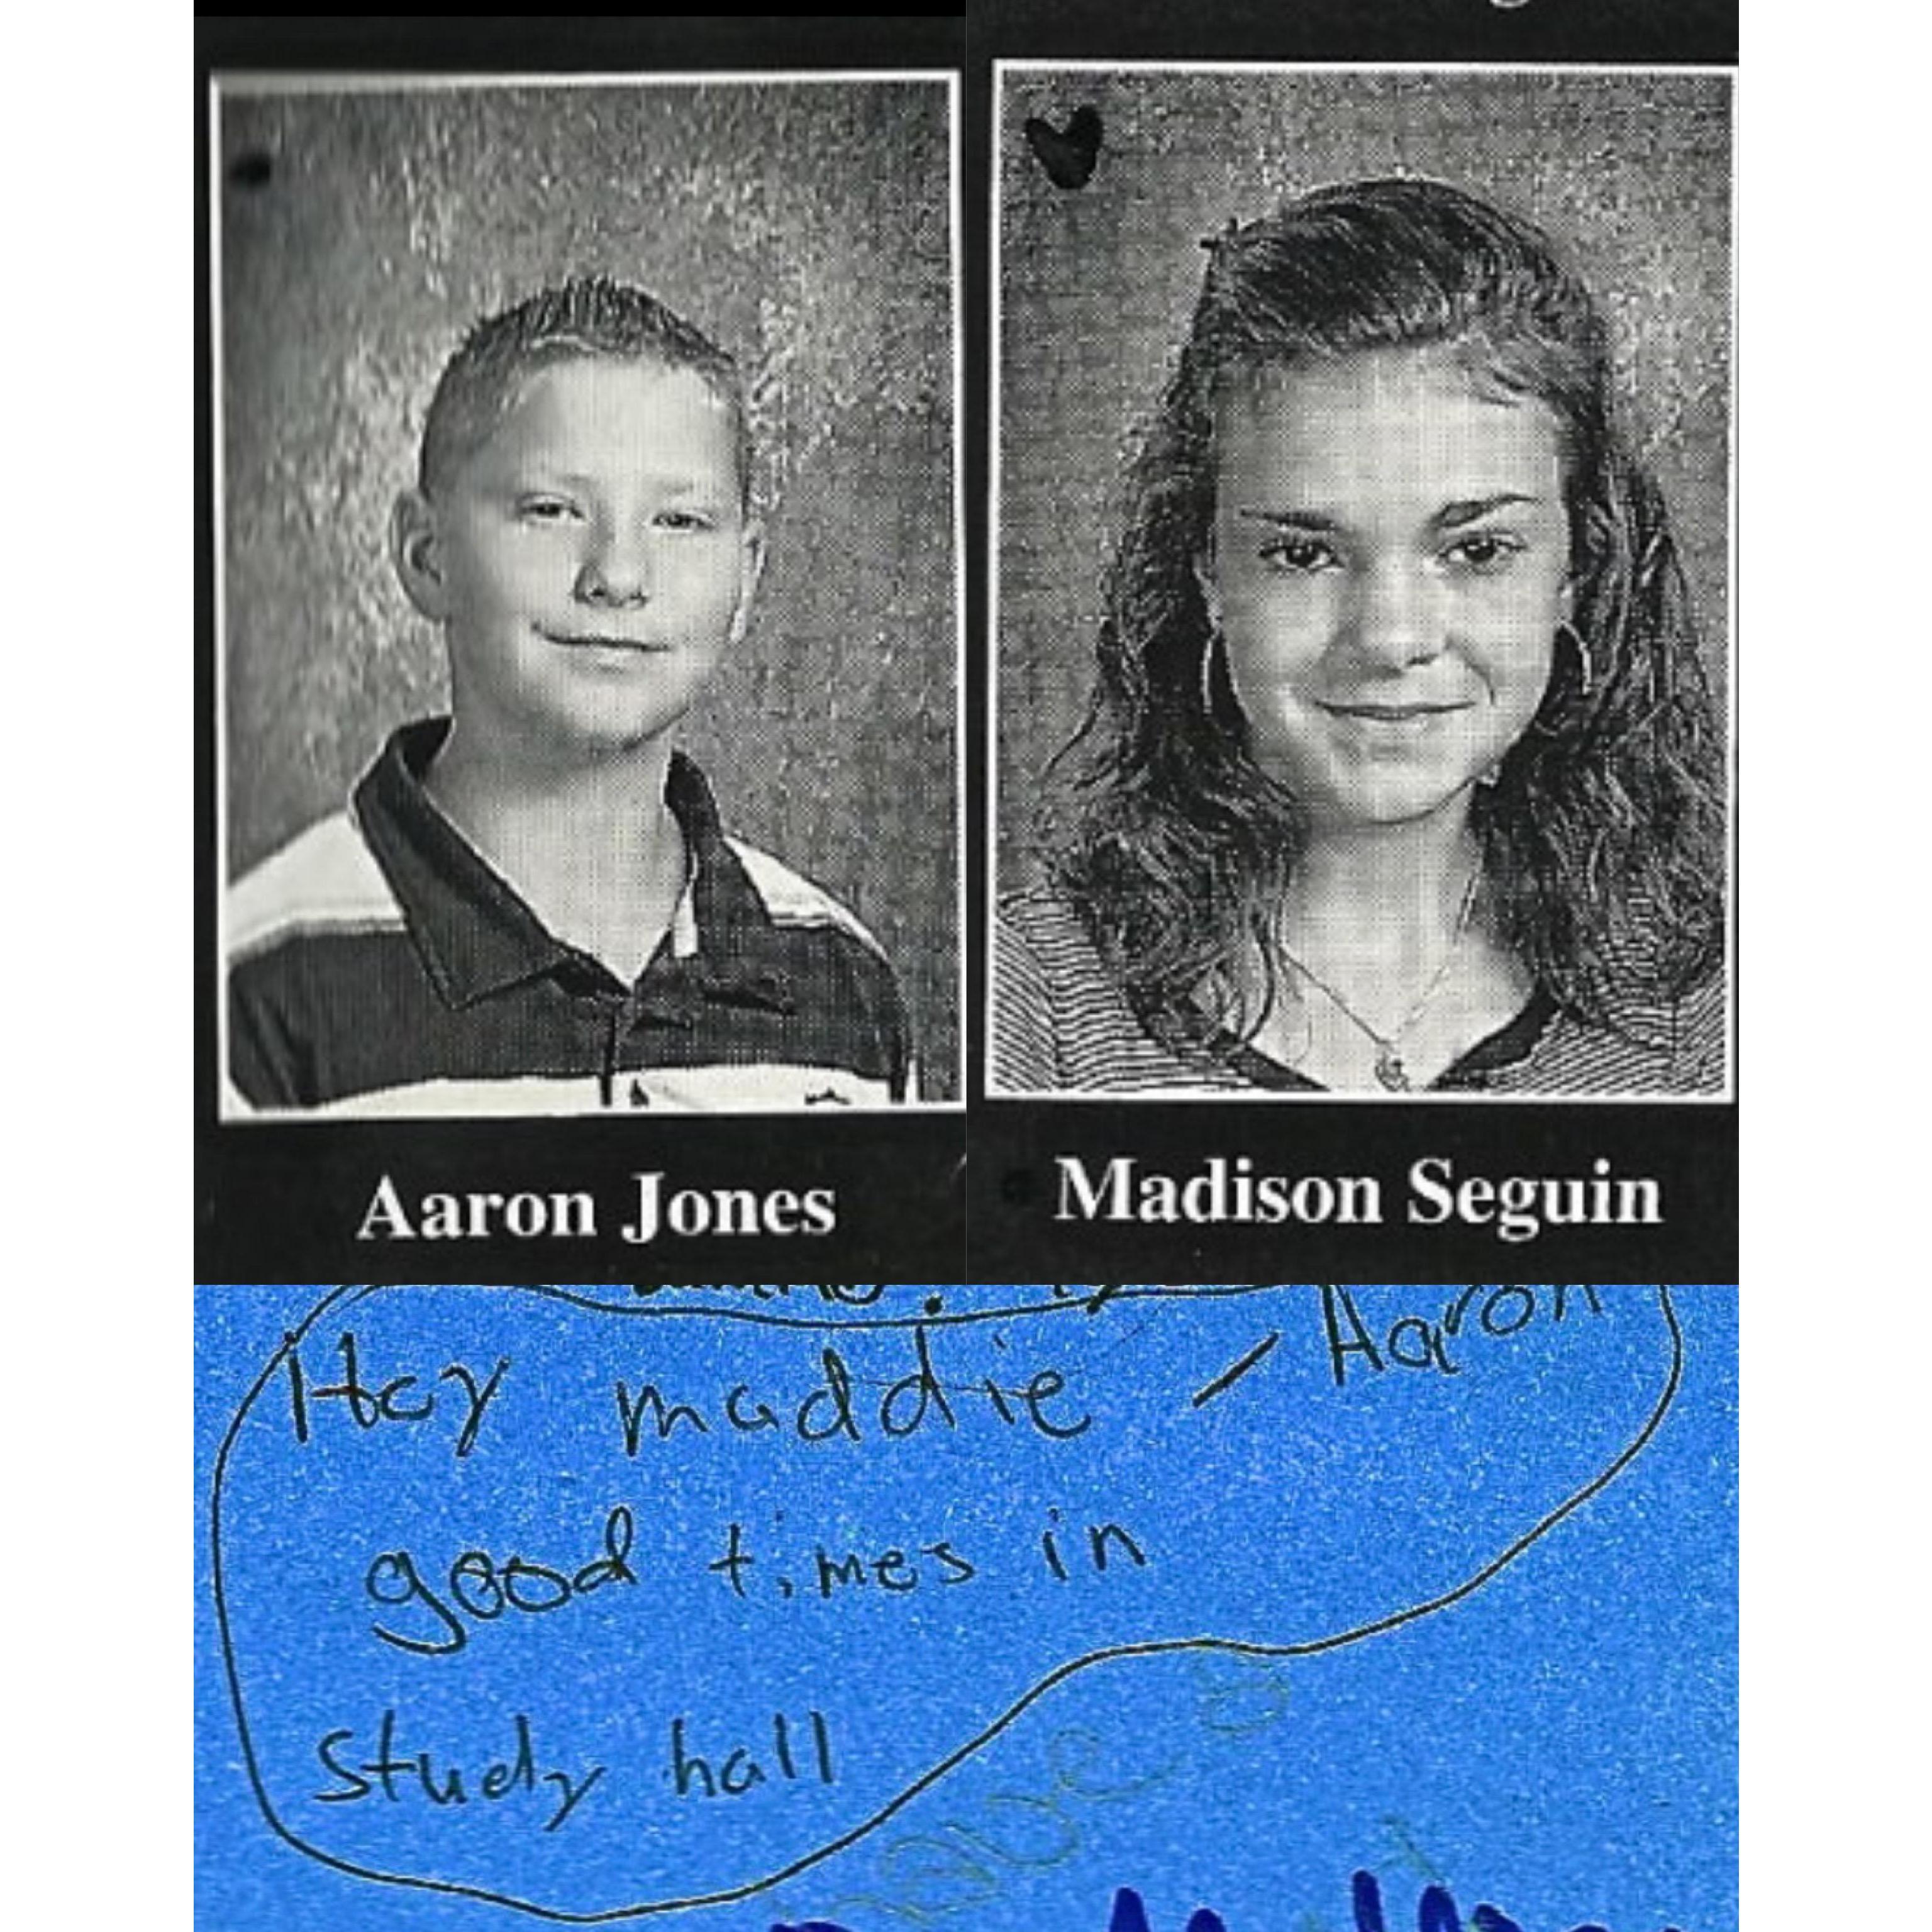 Aaron Jones
Madison Seguin
Hey maddie - Aaron
good times in
study hall